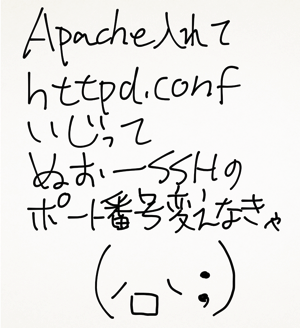 Apache入れて
httpd.conf
いじって
ぬおーSSHの
ポート番号変えなきゃ
(ノロヽ;)